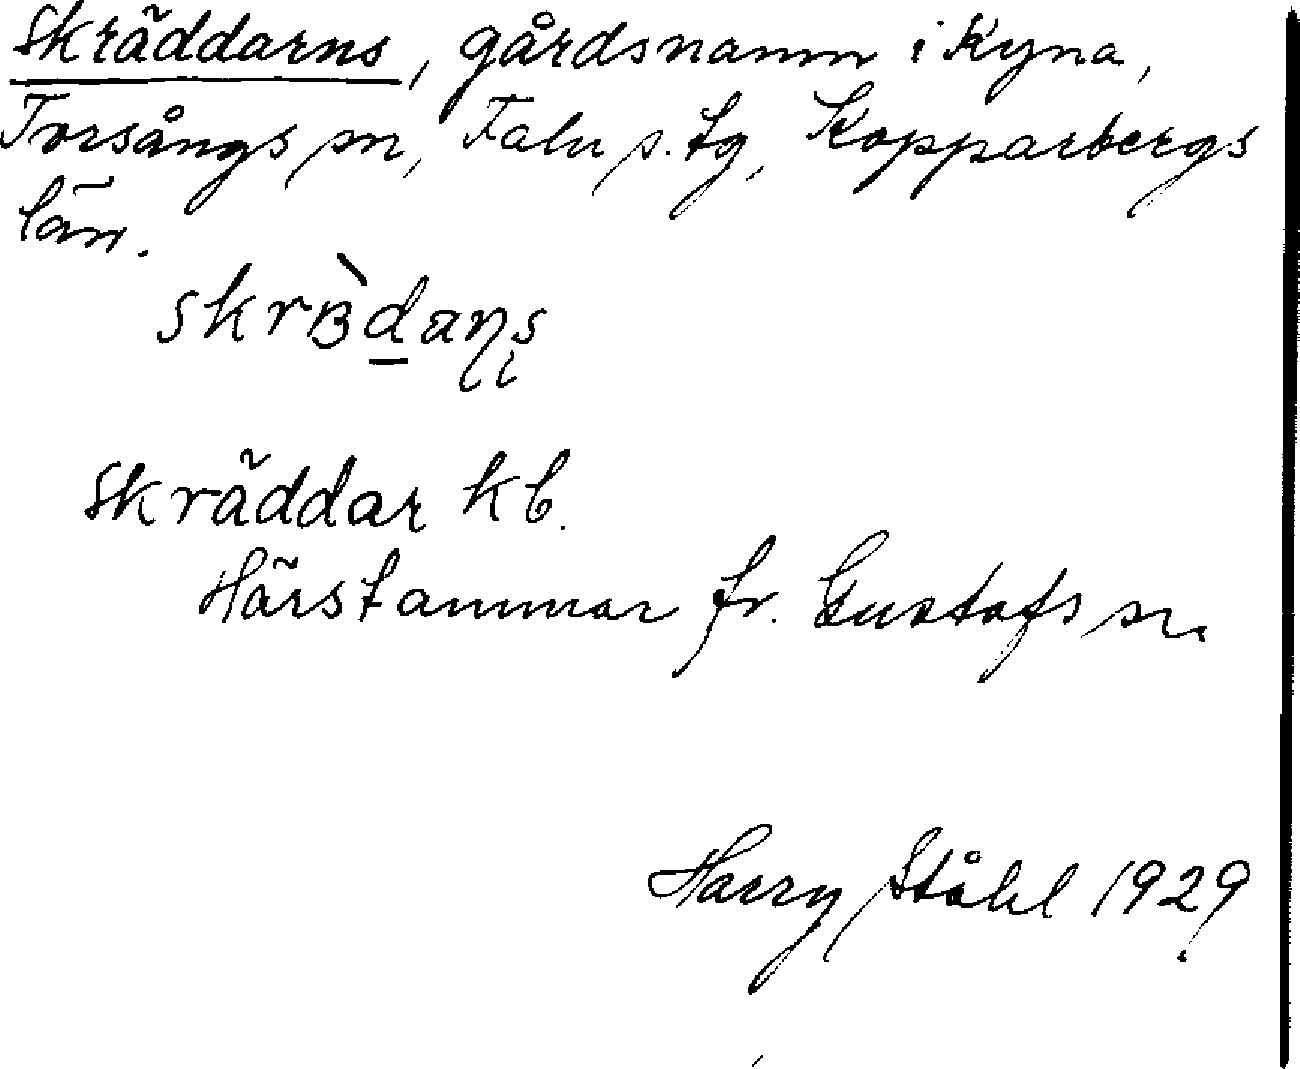 Skräddarns, gårdsnamn i Kyna,
Torsångs sn, Falu s. tg, Kopparbergs
län.
Skräddar kb.
Härstammar fr. Gustafs sn.
Harry Ståhl 1929